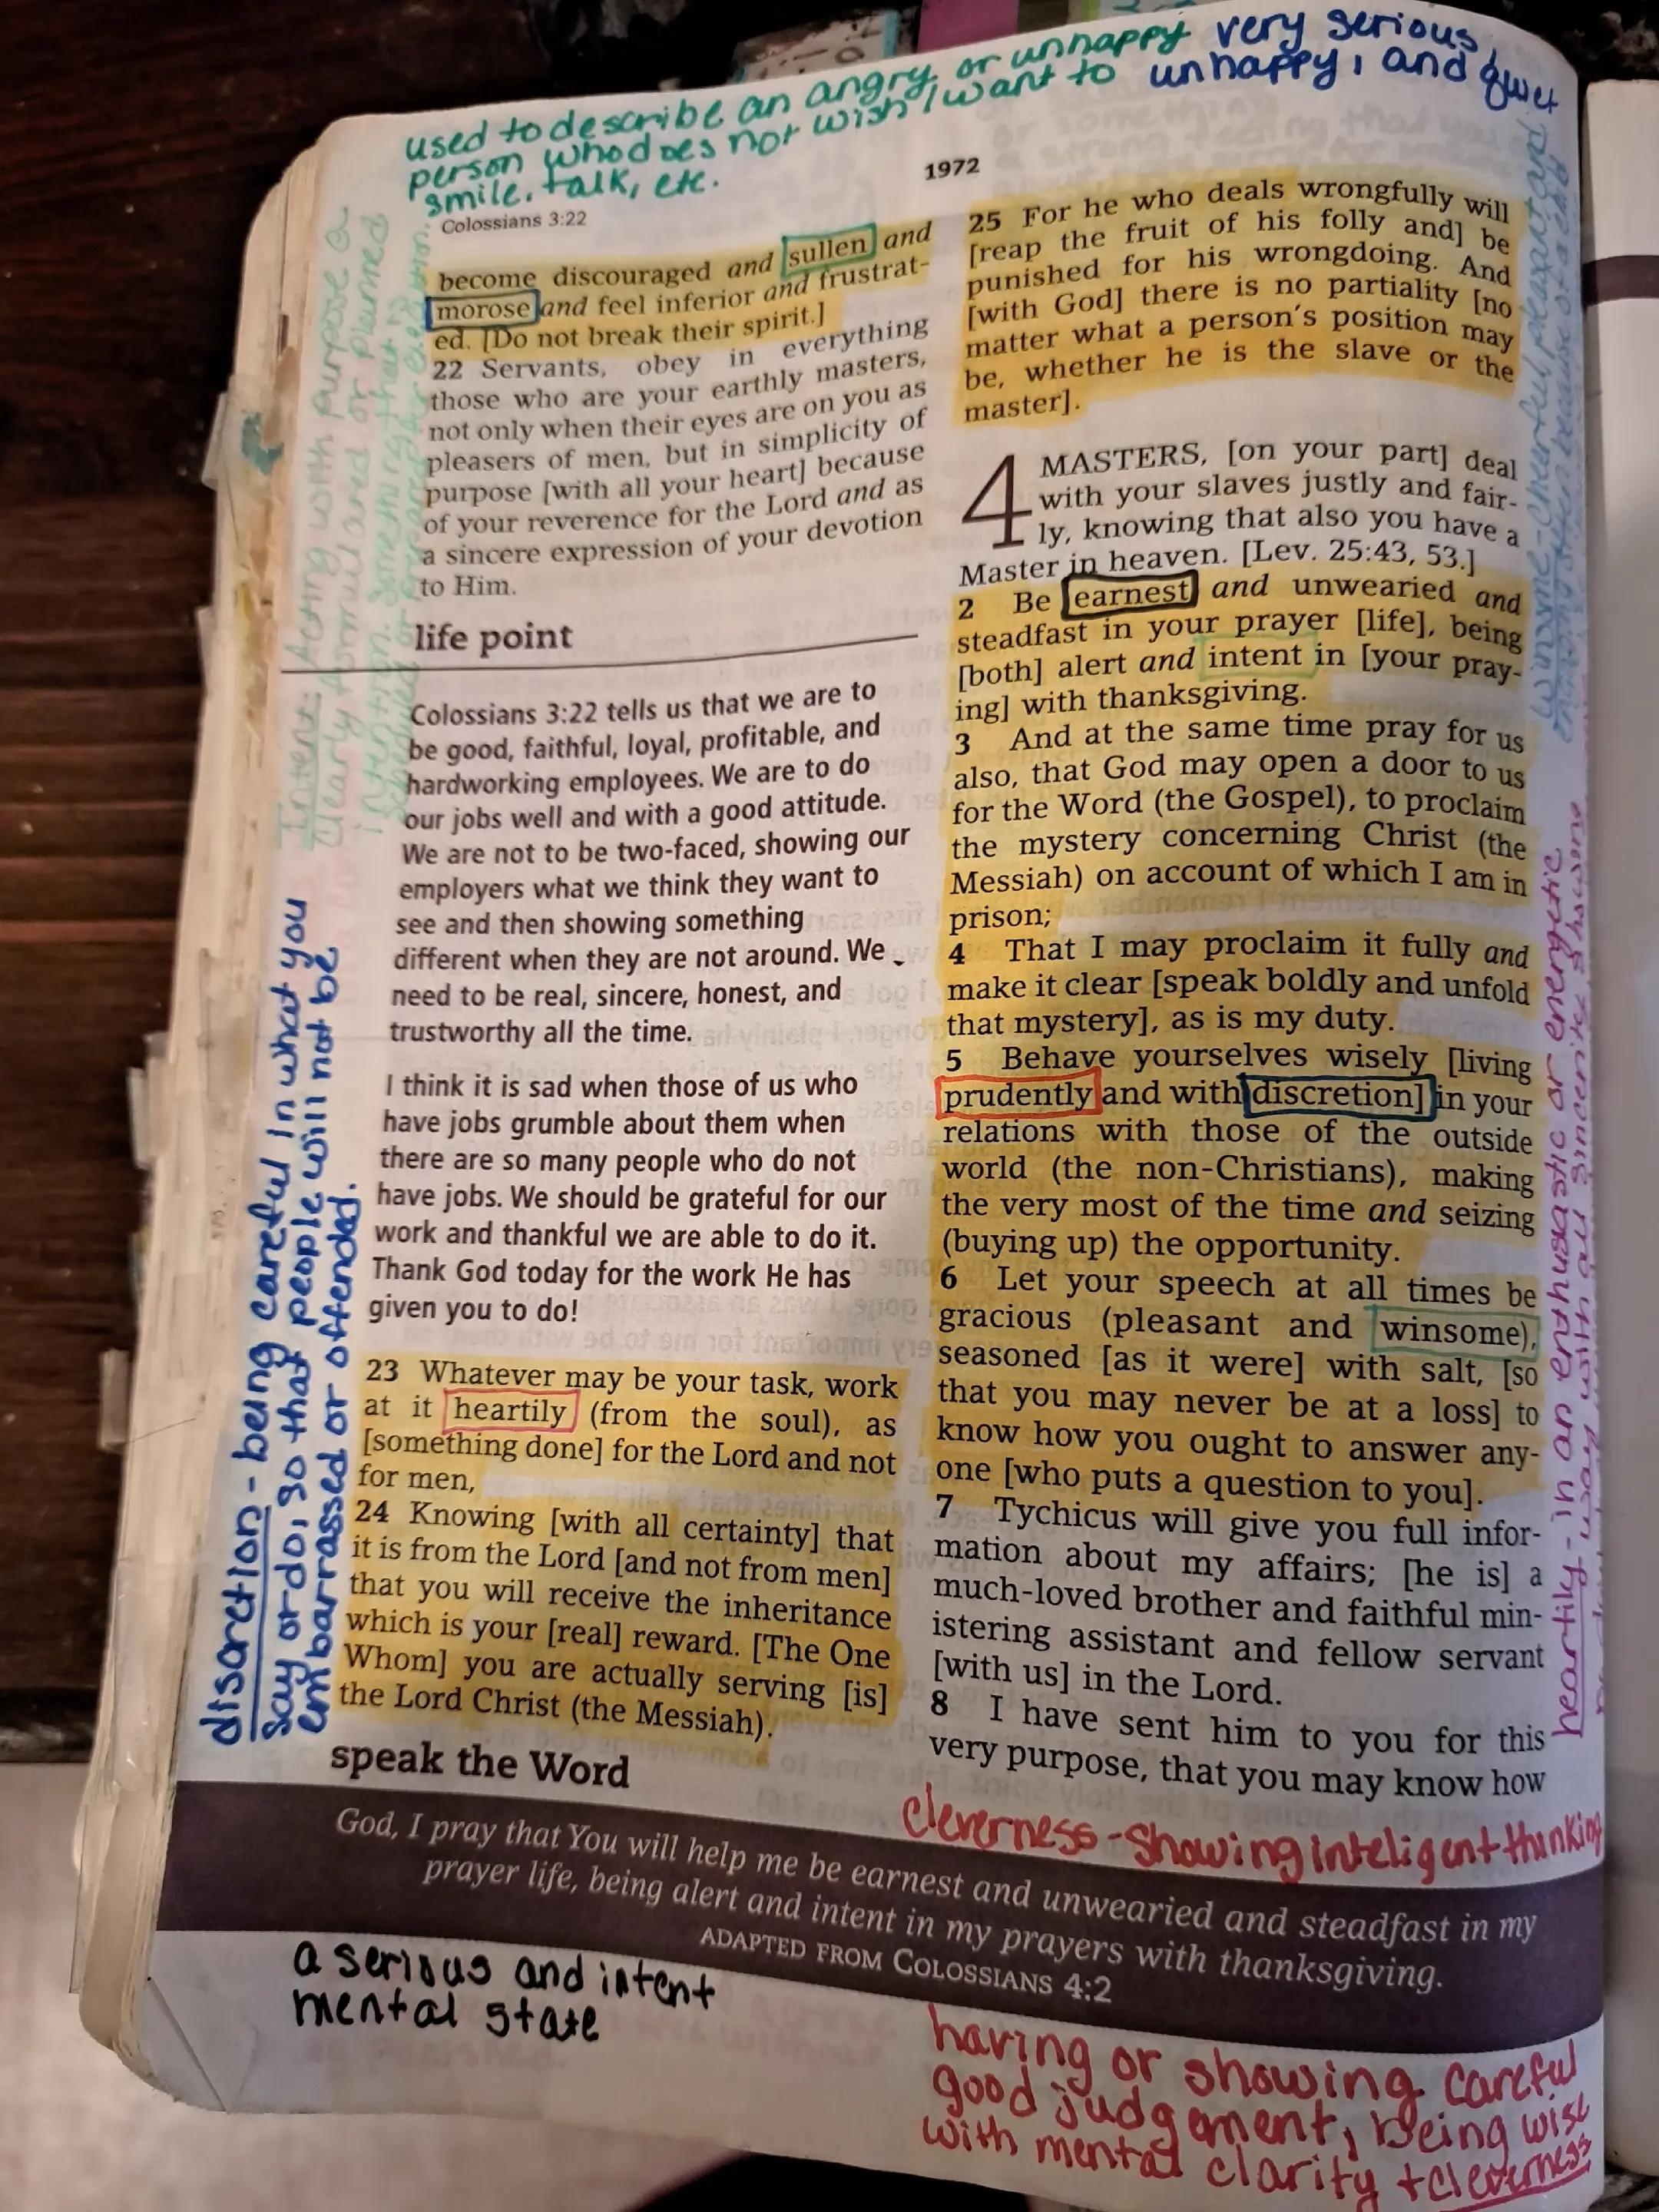 used to describe an angry or unhappy
person who does not wish / want to
smile, talk, etc.
very serious,
unhappy, and quiet
1972
Colossians 3:22
become discouraged and sullen and
morose and feel inferior and frustrat-
ed. [Do not break their spirit.]
22 Servants, obey in everything
those who are your earthly masters,
not only when their eyes are on you as
pleasers of men, but in simplicity of
purpose [with all your heart] because
of your reverence for the Lord and as
a sincere expression of your devotion
to Him.
life point
Colossians 3:22 tells us that we are to
be good, faithful, loyal, profitable, and
hardworking employees. We are to do
our jobs well and with a good attitude.
We are not to be two-faced, showing our
employers what we think they want to
see and then showing something
different when they are not around. We
need to be real, sincere, honest, and
trustworthy all the time.
I think it is sad when those of us who
have jobs grumble about them when
there are so many people who do not
have jobs. We should be grateful for our
work and thankful we are able to do it.
Thank God today for the work He has
given you to do!
23 Whatever may be your task, work
at it heartily (from the soul), as
[something done] for the Lord and not
for men,
24 Knowing [with all certainty] that
it is from the Lord [and not from men]
that you will receive the inheritance
which is your [real] reward. [The One
Whom] you are actually serving [is]
the Lord Christ (the Messiah).
speak the Word
God, I pray that You will help me be earnest and unwearied and steadfast in my
prayer life, being alert and intent in my prayers with thanksgiving.
ADAPTED FROM COLOSSIANS 4:2
25 For he who deals wrongfully will
[reap the fruit of his folly and] be
punished for his wrongdoing. And
[with God] there is no partiality [no
matter what a person's position may
be, whether he is the slave or the
master].
4 MASTERS, [on your part] deal
with your slaves justly and fair-
ly, knowing that also you have a
Master in heaven. [Lev. 25:43, 53.]
2 Be earnest and unwearied and
steadfast in your prayer [life], being
[both] alert and intent in [your pray-
ing] with thanksgiving.
3 And at the same time pray for us
also, that God may open a door to us
for the Word (the Gospel), to proclaim
the mystery concerning Christ (the
Messiah) on account of which I am in
prison;
4 That I may proclaim it fully and
make it clear [speak boldly and unfold
that mystery], as is my duty.
5 Behave yourselves wisely [living
prudently and with discretion] in your
relations with those of the outside
world (the non-Christians), making
the very most of the time and seizing
(buying up) the opportunity.
6 Let your speech at all times be
gracious (pleasant and winsome),
seasoned [as it were] with salt, [so
that you may never be at a loss] to
know how you ought to answer any-
one [who puts a question to you].
7 Tychicus will give you full infor-
mation about my affairs; [he is] a
much-loved brother and faithful min-
istering assistant and fellow servant
[with us] in the Lord.
8 I have sent him to you for this
very purpose, that you may know how
Intent: Acting with purpose
clearly formulated or planned
intention. something that is
discretion - being careful in what you
say or do, so that people will not be
embarrassed or offended.
winsome - cheerful, pleasant and
heartily - in an enthusiastic or energetic
way with all sincerity
cleverness - showing inteligent thinking
a serious and intent
mental state
having or showing careful
good judgement, Being wise
with mental clarity + cleverness